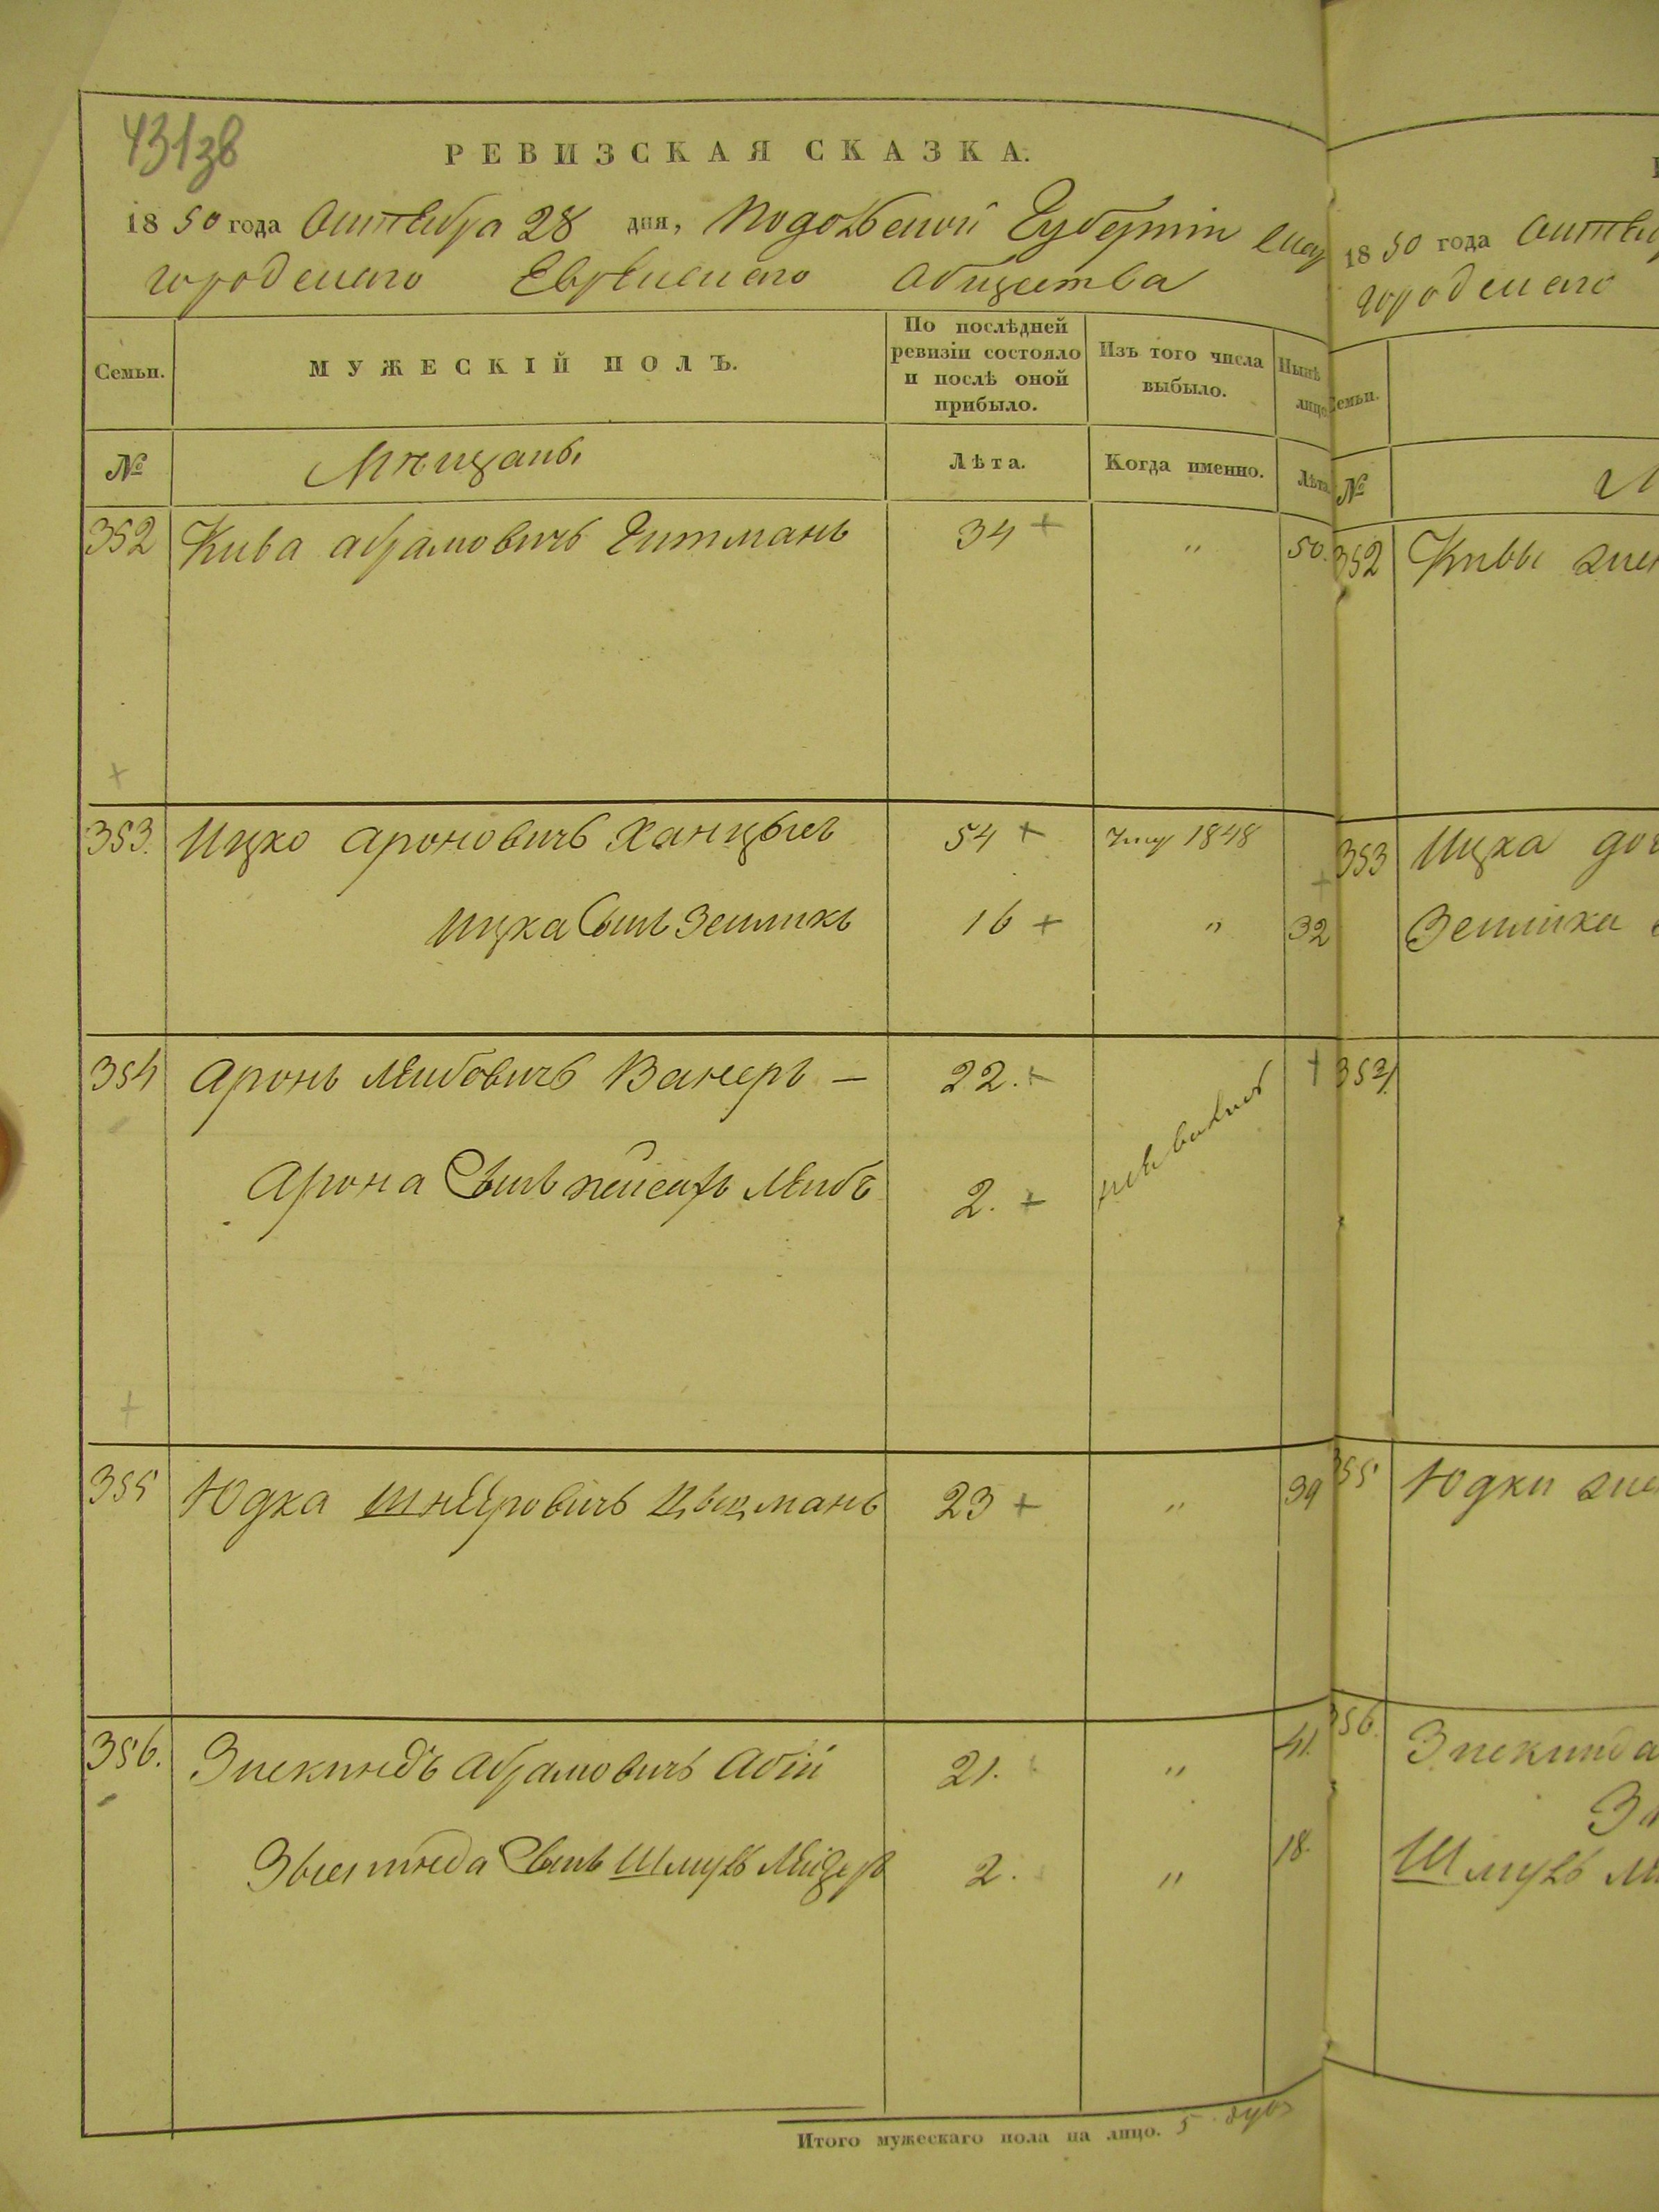 431зв
РЕВИЗСКАЯ СКАЗКА.
1850 года Октября 28 дня, Подольской Губерніи
городскаго Еврейскаго Общества
Семьи.
МУЖЕСКІЙ ПОЛЪ.
По послѣдней
ревизіи состояло
и послѣ оной
прибыло.
Изъ того числа
выбыло.
Нынѣ
лицо
№
Мѣщане
Лѣта.
Когда именно.
Лѣта
352 Кива Абрамовичъ Гитманъ 34 + " 50.
+
353. Ицко Ароновичъ Ханцысъ 54 + 1848
Ицка Сынъ Зейликъ 16 + " 32
354 Аронъ Лейбовичъ Вакеръ — 22. +
Арона Сынъ Пейсахъ Лейбъ 2. +
+
355 Юдка Шнёеровичъ Цыцманъ 23 + " 39
356. Абрамовичъ 21. " 41.
Сынъ Шмуль Лейзеръ 2. " 18.
Итого мужескаго пола на лицо. 5 душъ
1850 года
городскаго
Семьи.
№
352 Кивы
353 Ицка
Зейлика
354
355 Юдки
356.
Шмуль